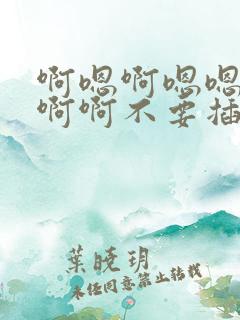 啊嗯啊嗯嗯
啊啊不要插
葉曉玥
未经同意禁止转载